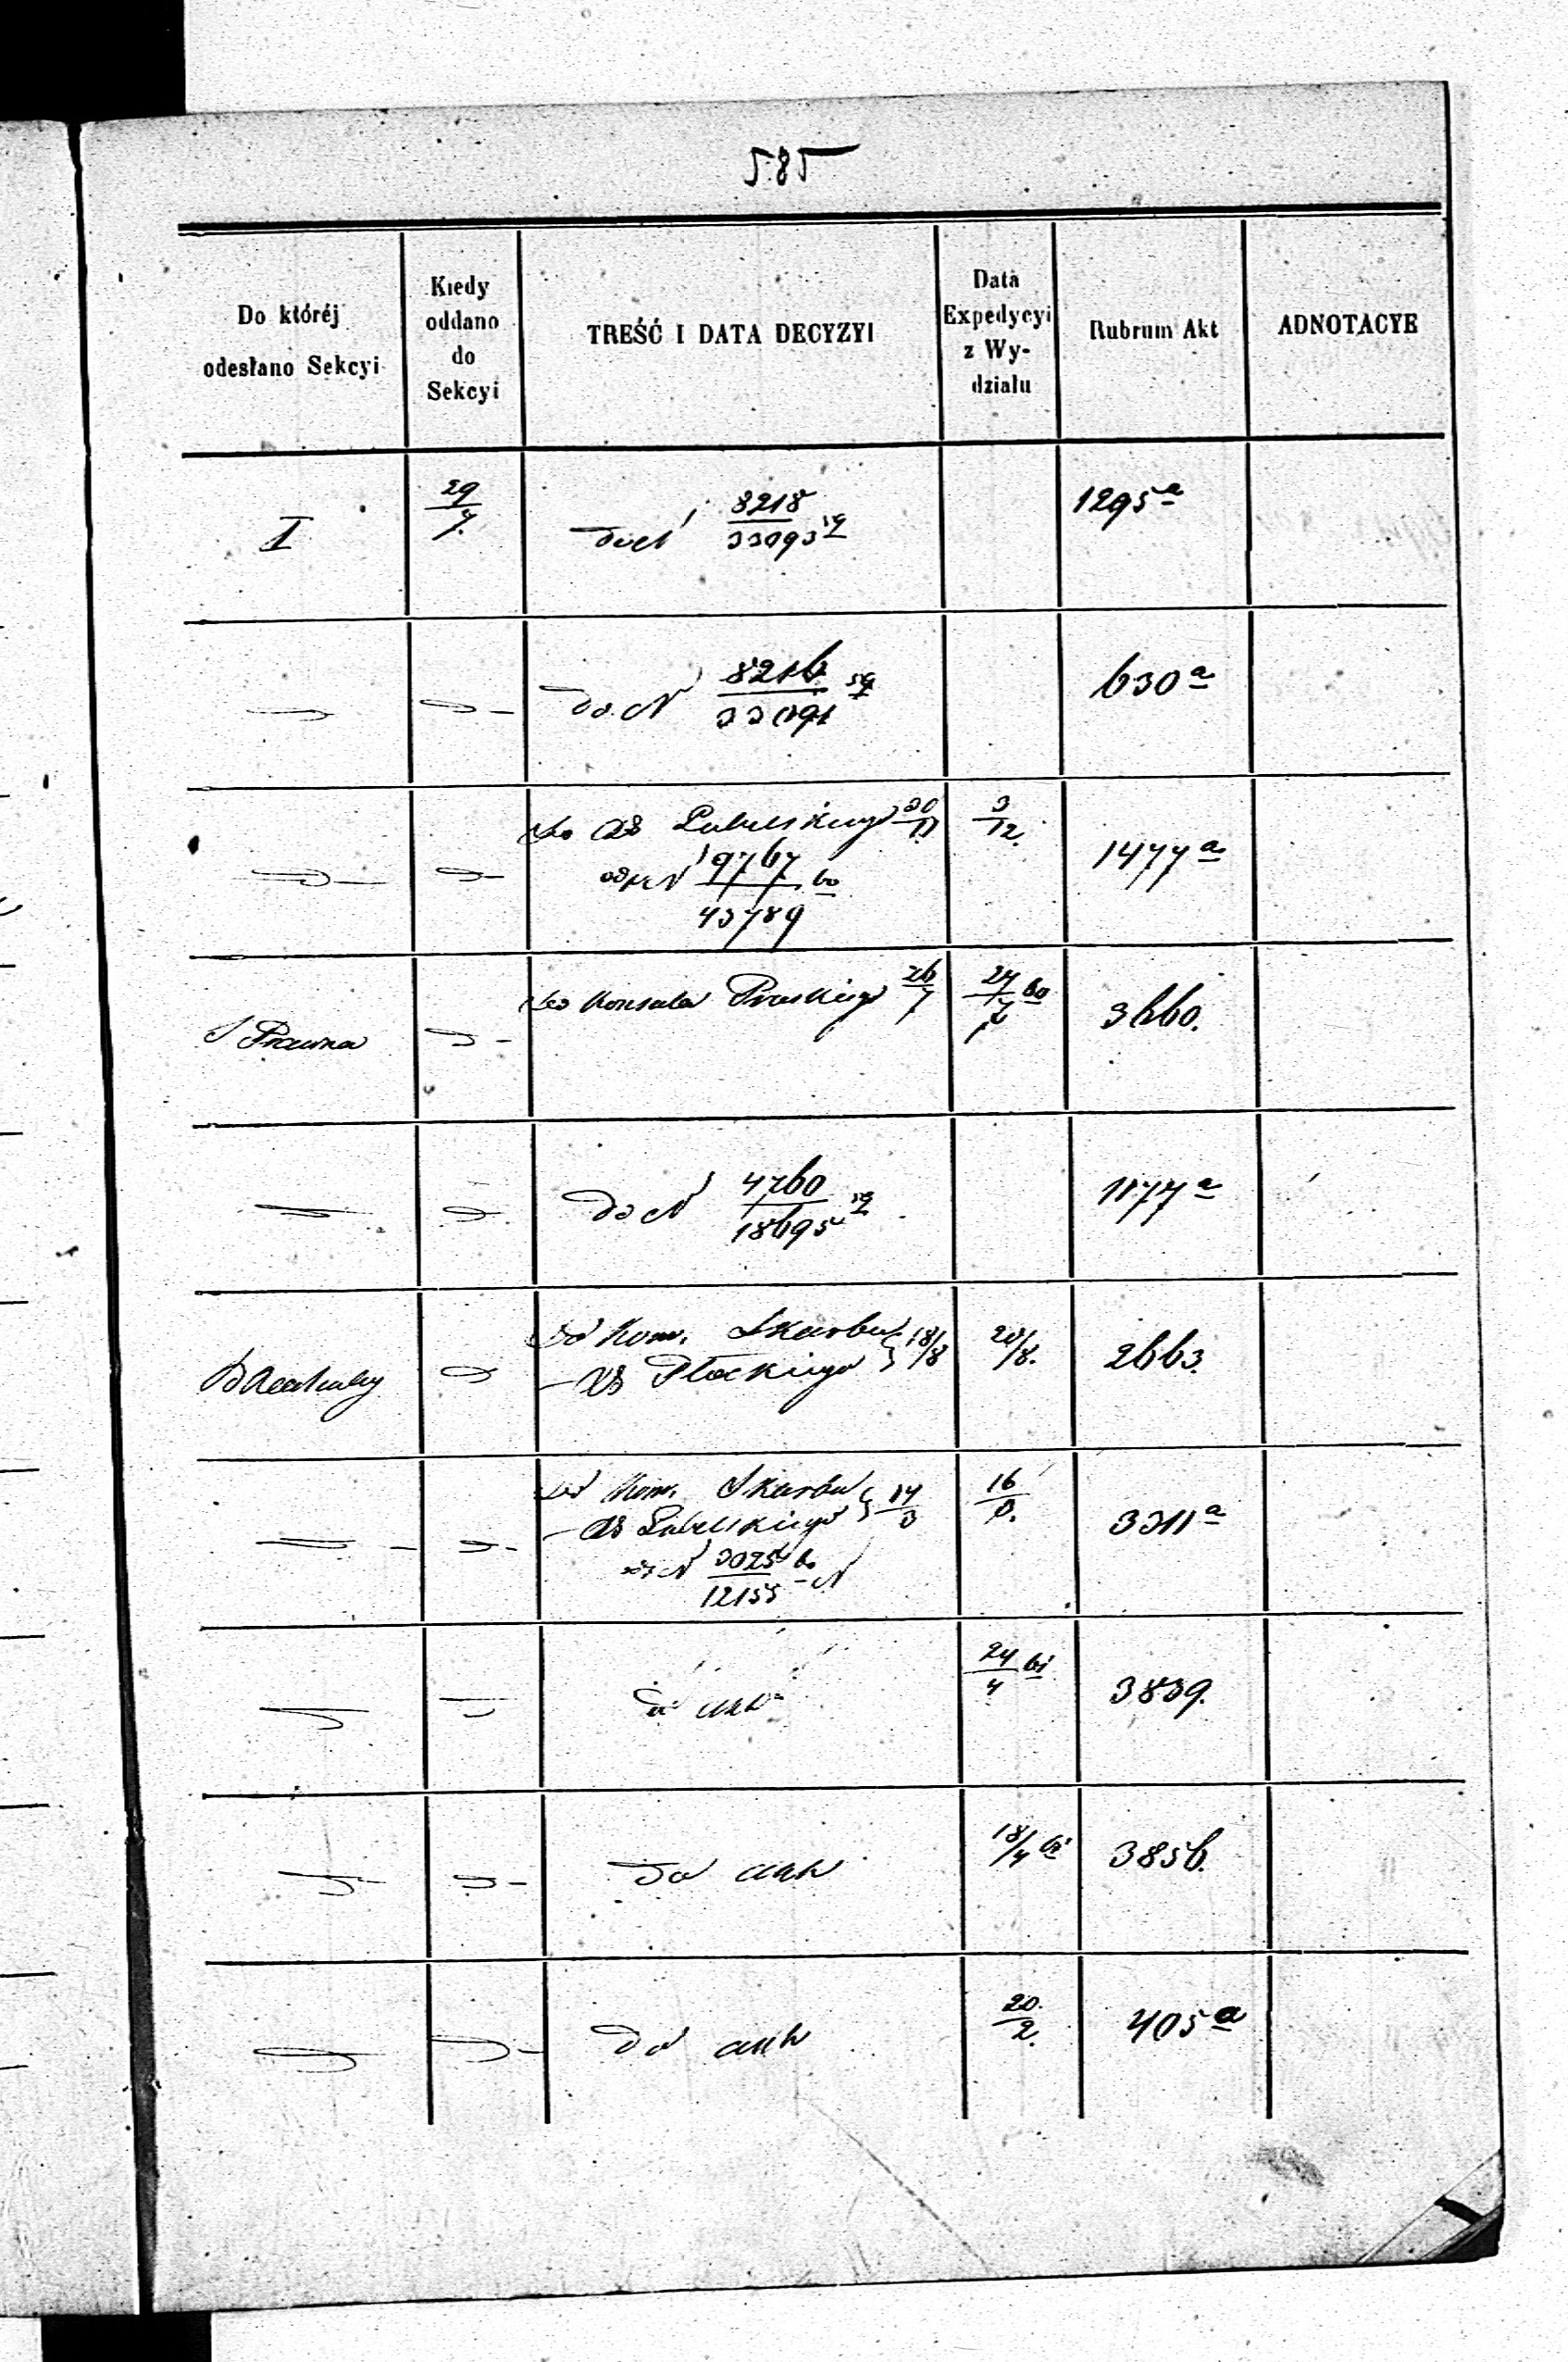 585
Do któréj
odesłano Sekcyi
Kiedy
oddano
do
Sekcyi
TREŚĆ I DATA DECYZYI
Data
Expedycyi
z Wy-
działu
Rubrum Akt
ADNOTACYE
I
29/7.
do N 8218/33093 59
1295a
do N 8216/33091 59
630a
do Lubelskiego 30/11
3/12.
N 9767/43789 60
1477a
Prawna
do Konsula Pruskiego 26/7
27/7 60
3660.
do N 4760/18695 59
1177a
do Kom. Skarbu 18/8
Płockiego
20/8.
2663.
do Kom. Skarbu 14/3
Lubelskiego
N 3025/12155
16/3.
3311a
do akt
24/4 61
3839.
do akt
18/4 61
3856.
do akt
20/2.
405a